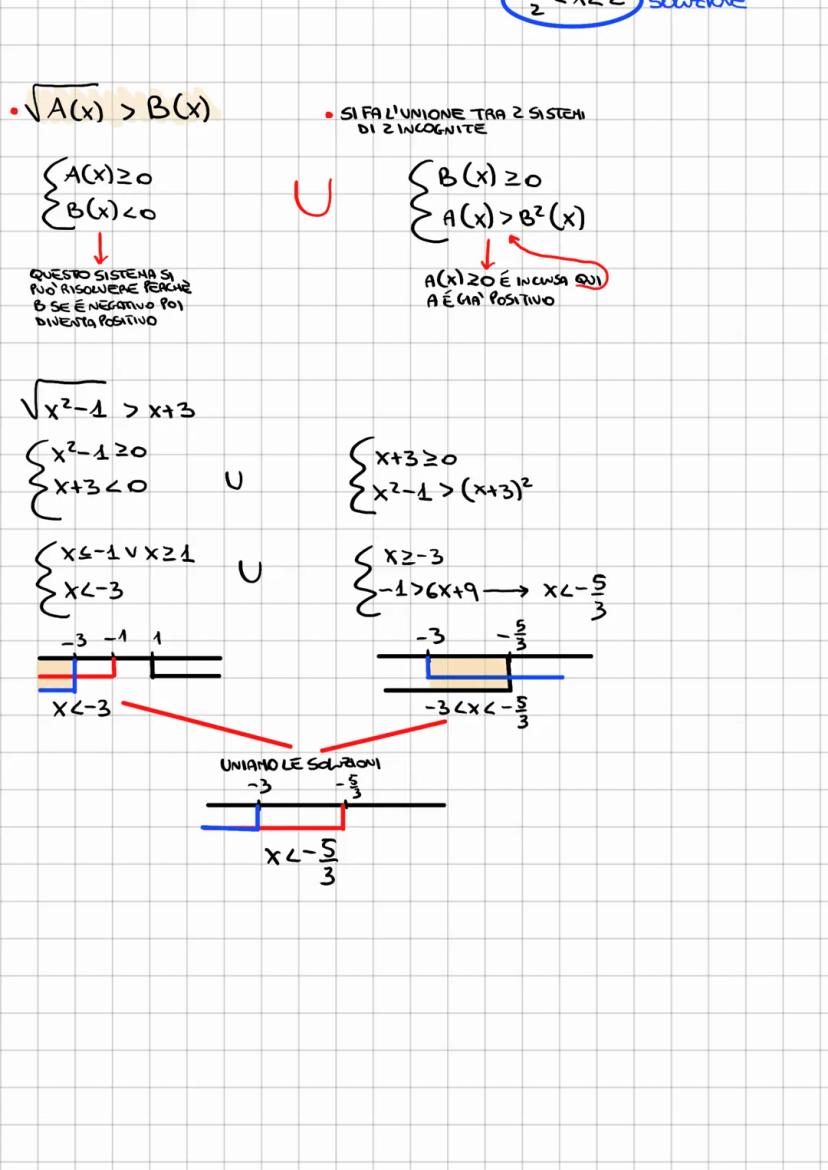 SOLUZIONE
• √A(x) > B(x)
• SI FA L'UNIONE TRA 2 SISTEMI
DI 2 INCOGNITE
{ A(x) ≥ 0
B(x) < 0
U
{ B(x) ≥ 0
A(x) > B²(x)
QUESTO SISTEMA SI
PUO' RISOLVERE PERCHÈ
B SE É NEGATIVO POI
DIVENTA POSITIVO
A(x) ≥ 0 É INCLUSA QUI
A É GIA' POSITIVO
√x²-1 > x+3
{ x²-1 ≥ 0
x+3 < 0
U
{ x+3 ≥ 0
x²-1 > (x+3)²
{ x ≤ -1 v x ≥ 1
x < -3
U
{ x ≥ -3
-1 > 6x+9 → x < -5/3
-3 -1 1
-3 -5/3
x < -3
-3 < x < -5/3
UNIAMO LE SOLUZIONI
-3 -5/3
x < -5/3